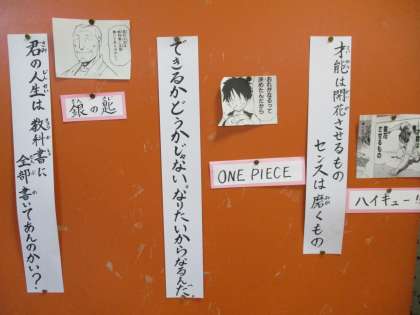 才能は開花させるもの
センスは磨くもの
ハイキュー!!
できるかどうかじゃない。なりたいからなるんだ。
おれがなるって
決めたんだから
ONE PIECE
君の人生は 教科書に
全部 書いてあんのかい?
銀の匙
開花
させるもの